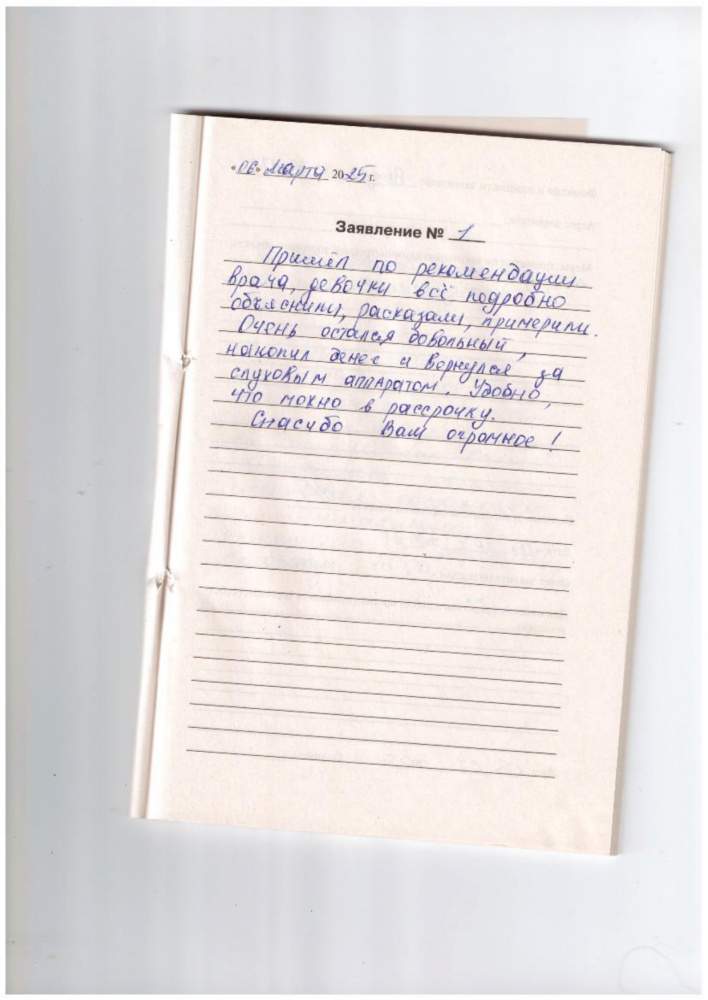 «06» марта 2025 г.
Заявление № 1
Пришёл по рекомендации
врача, девочки всё подробно
объяснили, расказали, примерили.
Очень остался довольный,
накопил денег и вернулся за
слуховым аппаратом. Удобно,
что можно в рассрочку.
Спасибо Вам огромное!